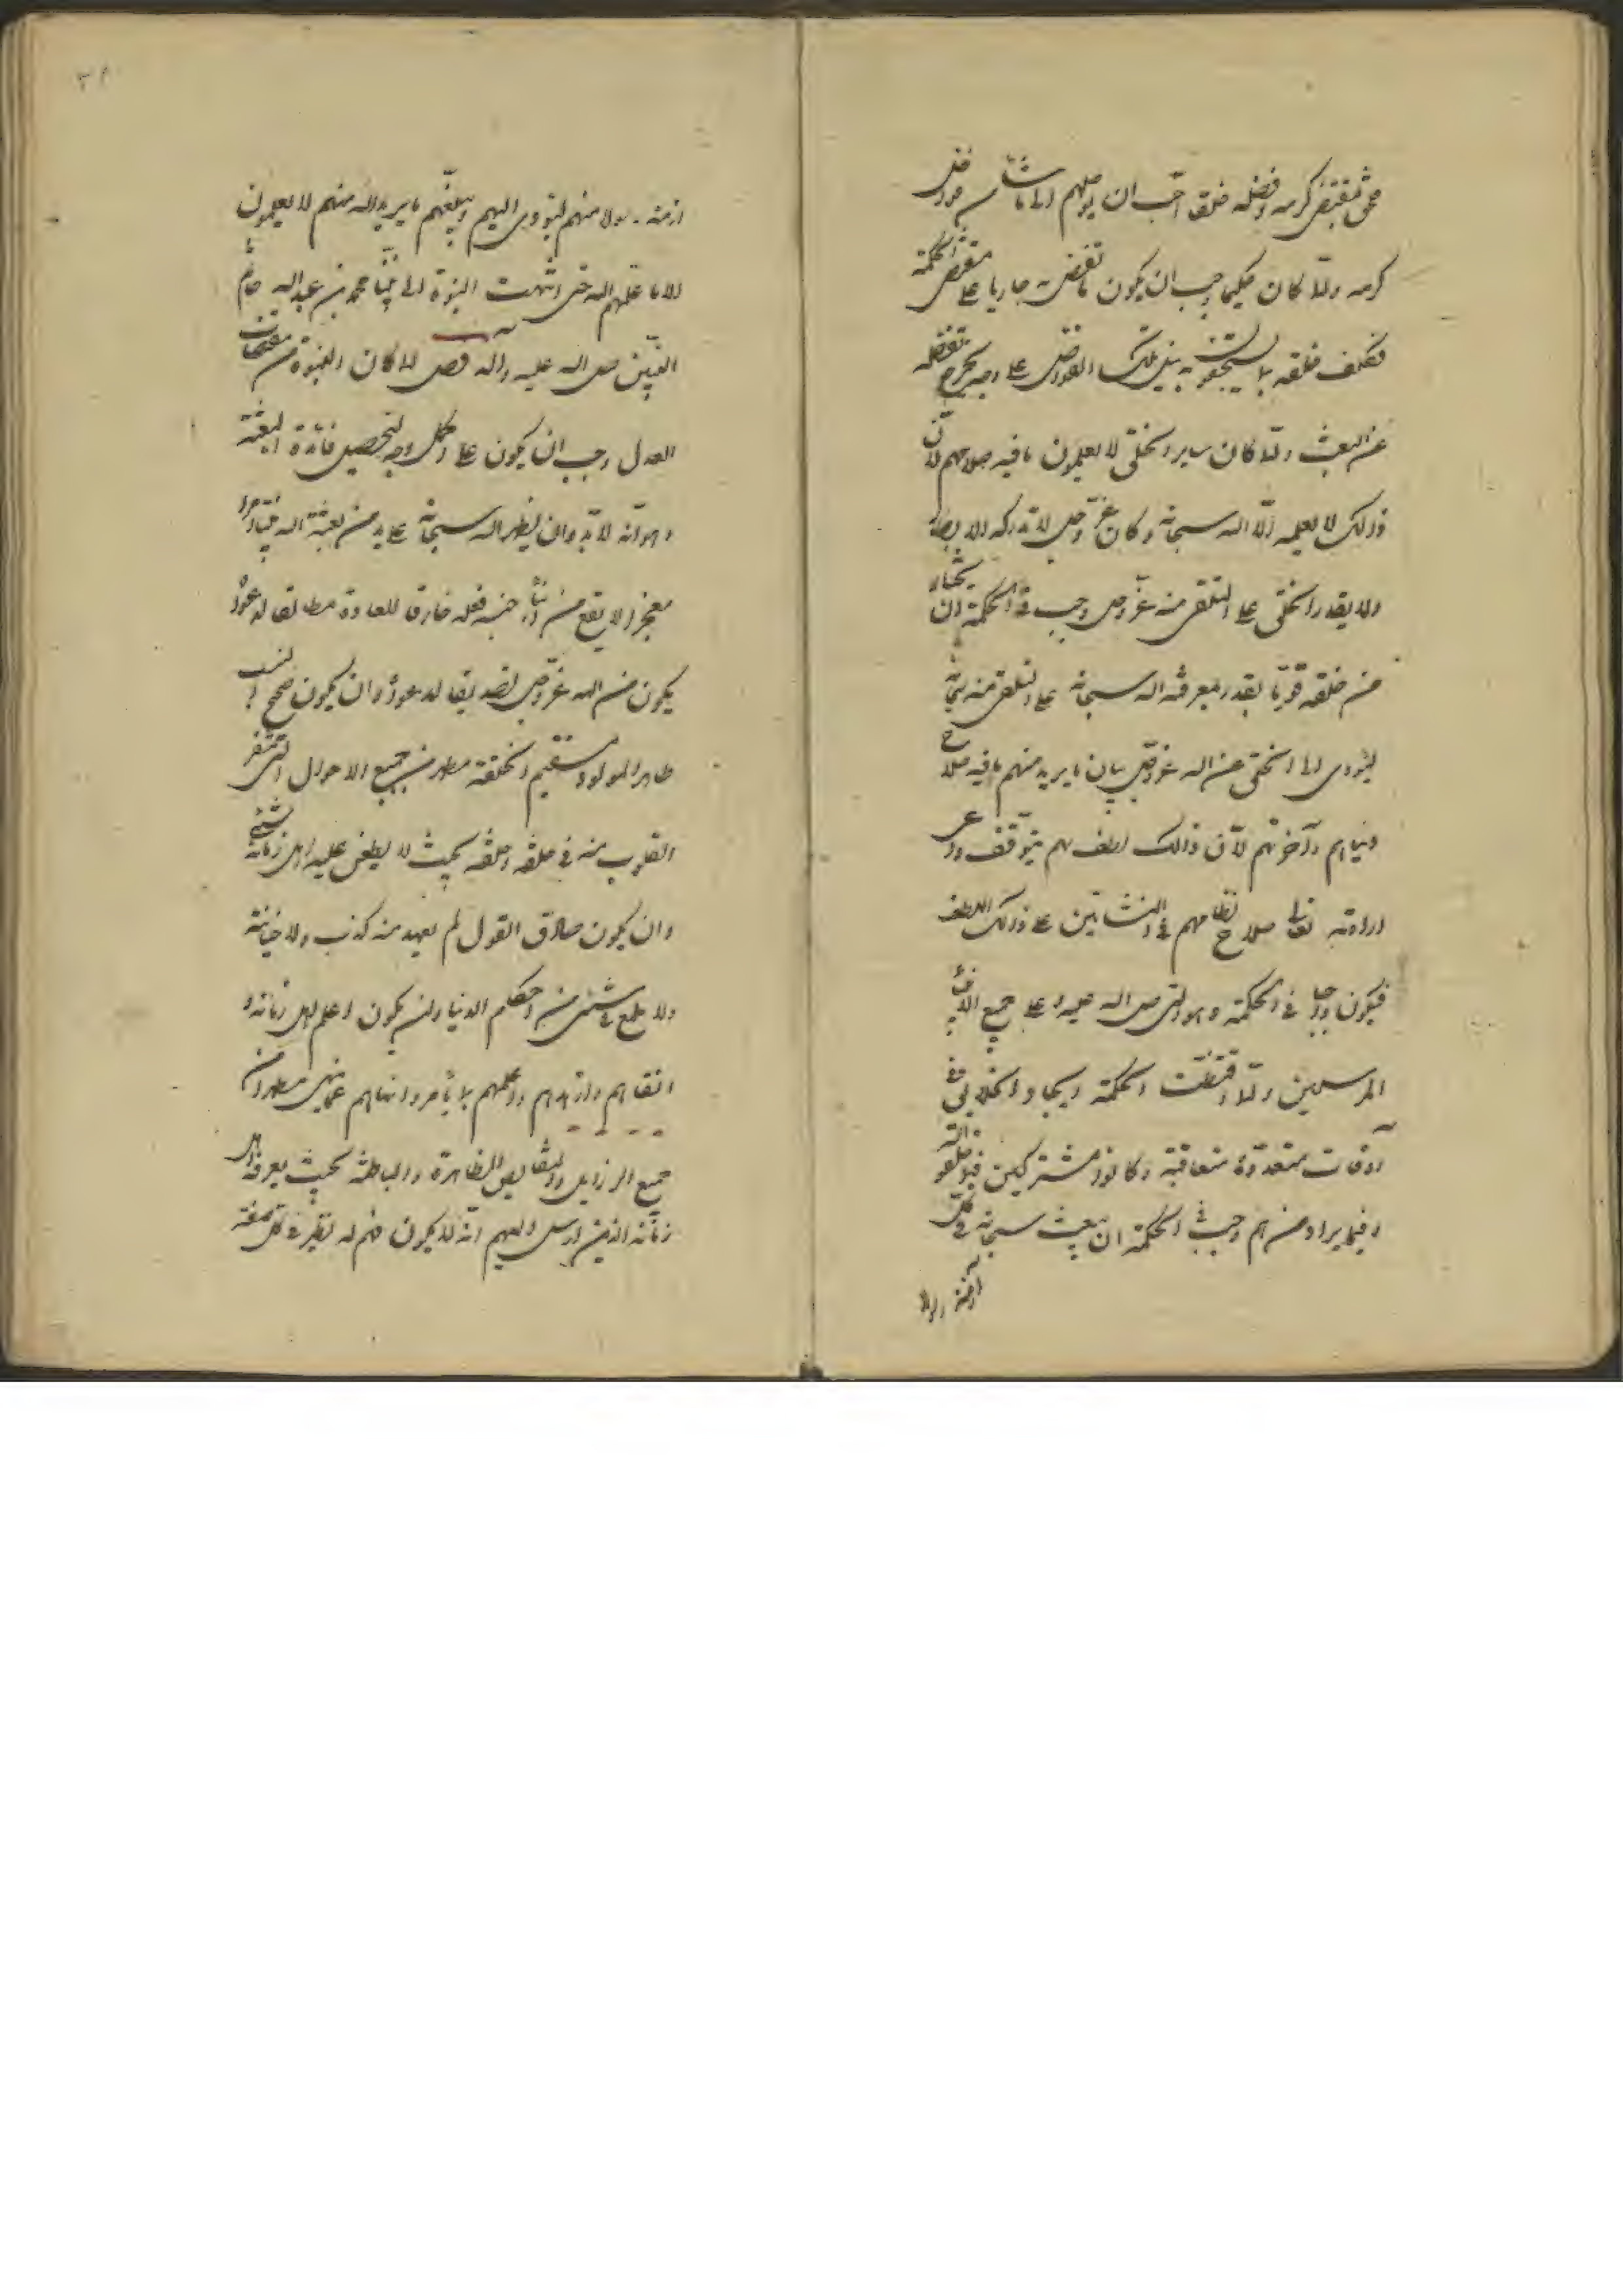 فمن مقتضى كرمه وفضله خلق احب ان يوصلهم الى ما شاء من فواضل
كرمه ولما كان حكيما وجب ان يكون ما تفضل به جاريا على مقتضى الحكمة
فكلف خلقه بما يستحقون به نيل تلك الفواضل على وجه يخرج تفضله
عن العبث ولما كان ساير الخلق لا يعلمون ما فيه صلاحهم لان
ذلك لا يعلمه الا الله سبحانه وكان عز وجل لا تدركه الابصار
ولا يقدر الخلق على التلقى منه عز وجل وجب فى الحكمة ان يختار
من خلقه قويا يقدر بمعرفة الله سبحانه على التلقى منه سبحانه
ليؤدى الى الخلق عن الله عز وجل بيان ما يريد منهم ما فيه صلاح
دنياهم وآخرتهم لان ذلك لطف بهم يتوقف
ارادته تعالى صلاح نظامهم فى النشاتين على ذلك اللطف
فيكون واجبا فى الحكمة وهو النبى صلى الله عليه وعلى جميع الانبياء
المرسلين ولما اقتضت الحكمة ايجاد الخلايق فى
اوقات متعددة متعاقبة وكانوا مشتركين فيما خلقوا له
وفيما يراد منهم وجب فى الحكمة ان يبعث سبحانه فى كل
ازمنة رسولا
ازمنة رسولا منهم ليؤدى اليهم ويبلغهم ما يريد الله منهم لا يعلمون
الا ما علمهم الله حتى انتهت النبوة الى نبينا محمد بن عبدالله خاتم
النبيين صلى الله عليه وآله فصل لما كان النبوة من مقتضيات
العدل وجب ان يكون على اكمل وجه لتحصيل فائدة البعثة
وهو انه لا بد وان يظهر الله سبحانه على يد من بعثه الله
معجزا لا يقع من ابناء جنسه فعله خارقا للعادة مطابقا لدعواه
يكون من الله عز وجل تصديقا لدعواه وان يكون صحيح النسب
طاهر المولد مستقيم الخلقة مطهرا من جميع الاحوال التى تنفر
القلوب منه فى خلقه وخلقه بحيث لا يطعن عليه اهل زمانه بشئ
وان يكون صادق القول لم يعهد منه كذب ولا خيانة
ولا طمع فى شئ من حطام الدنيا وان يكون اعلم اهل زمانه و
اتقاهم وازهدهم واعملهم بما يأمر وانهاهم عما ينهى مطهرا من
جميع الرذايل والنقايص الظاهرة والباطنة بحيث يعرف اهل
زمانه الذين ارسل اليهم انه لا يكون فيهم له نظير فى كل صفة